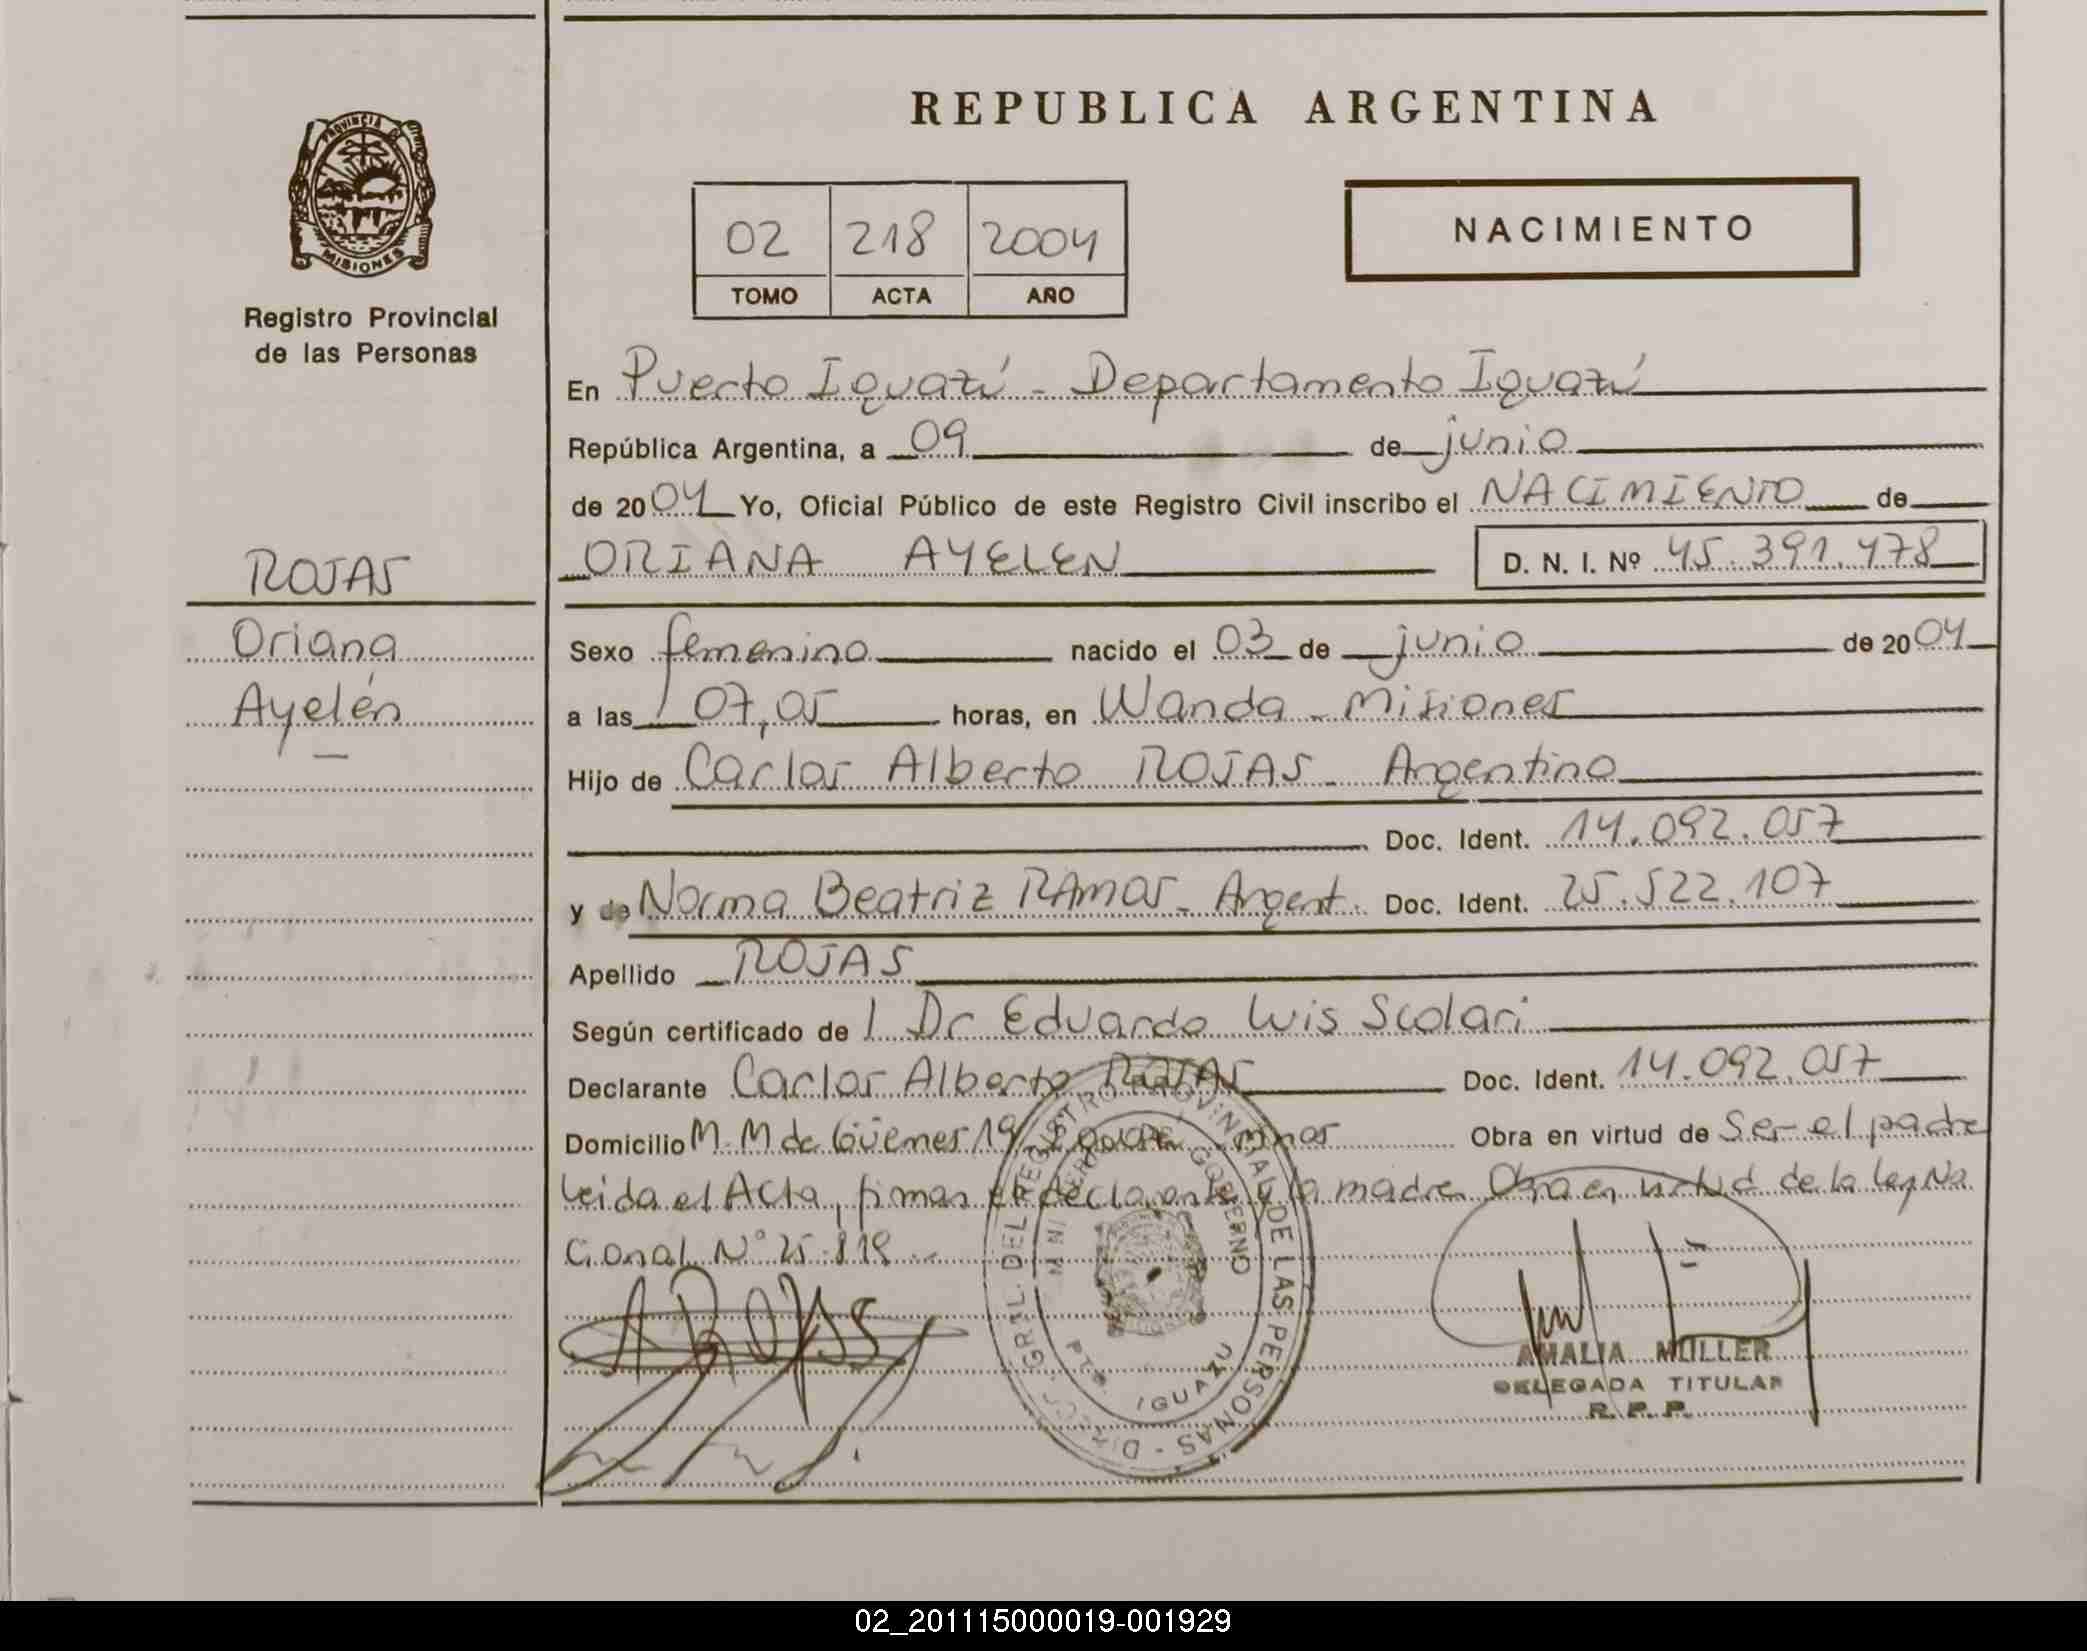 REPUBLICA ARGENTINA
PROVINCIA DE MISIONES
Registro Provincial
de las Personas
02 218 2004
TOMO ACTA AÑO
NACIMIENTO
En Puerto Iguazú - Departamento Iguazú
República Argentina, a 09 de junio
de 2004 Yo, Oficial Público de este Registro Civil inscribo el NACIMIENTO de
ROJAS
ORIANA AYELEN D. N. I. Nº 45.391.478
Oriana
Ayelén
Sexo femenino nacido el 03 de junio de 2004
a las 07,05 horas, en Wanda - Misiones
Hijo de Carlos Alberto ROJAS - Argentino
Doc. Ident. 14.092.057
y de Norma Beatriz RAMOS - Argent. Doc. Ident. 25.522.107
Apellido ROJAS
Según certificado de Dr Eduardo Luis Scolari
Declarante Carlos Alberto ROJAS Doc. Ident. 14.092.057
Domicilio M. M de Güemes 19 Obra en virtud de Ser el padre
Leida el Acta, firman el declarante y la madre Obra en virtud de la Ley Na
cional Nº 25.819
A ROJAS
DIRECC. GRAL. DEL REGISTRO PROVINCIAL DE LAS PERSONAS
MINISTERIO GOBIERNO
IGUAZU
AMALIA MULLER
DELEGADA TITULAR
R. P. P.
02_201115000019-001929